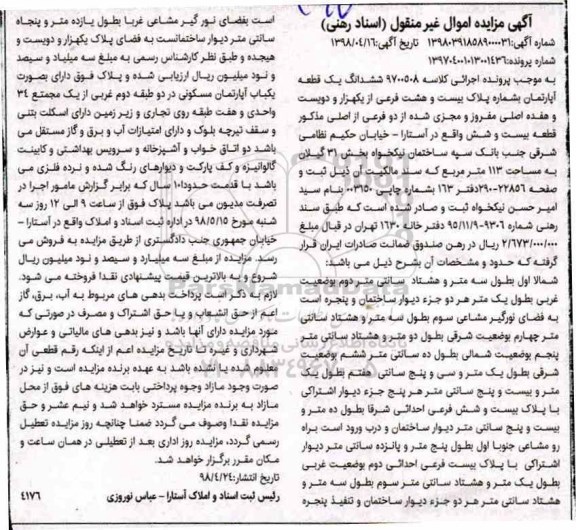 آگهی مزایده اموال غیر منقول (اسناد رهنی)
شماره آگهی:۱۳۹۸۰۳۹۱۸۵۸۹۰۰۰۰۳۱ تاریخ آگهی:۱۳۹۸/۰۴/۱۶
شماره پرونده:۱۳۹۷۰۴۰۰۱۰۱۳۰۰۱۴۳۶
به موجب پرونده اجرائی کلاسه ۹۷۰۰۵۰۸ ششدانگ یک قطعه
آپارتمان بشماره پلاک بیست و هشت فرعی از یکهزار و دویست
و هفده اصلی مفروز و مجزی شده از دو فرعی از اصلی مذکور
قطعه بیست و شش واقع در آستارا – خیابان حکیم نظامی
شرقی جنب بانک سپه ساختمان نیکخواه بخش ۳۱ گیلان
به مساحت ۱۱۳ متر مربع که سند مالکیت آن ذیل ثبت و
صفحه ۲۲۸۵۶-۲۹۰دفتر ۱۶۳ بشماره چاپی ۰۰۳۱۵۰ بنام سید
امیر حسن نیکخواه ثبت و صادر شده است که طبق سند
رهنی شماره ۹۳۰۶-۹۵/۱۱/۹ دفتر خانه ۱۶۳۰ تهران در قبال مبلغ
۲/۶۷۳/۰۰۰/۰۰۰ ریال در رهن صندوق ضمانت صادرات ایران قرار
گرفته که حدود و مشخصات آن بشرح ذیل می باشد:
شمالا اول بطول سه متر و هشتاد سانتی متر دوم بوضعیت
غربی بطول یک متر هر دو جزء دیوار ساختمان و پنجره است
به فضای نورگیر مشاعی سوم بطول سه متر و هشتاد سانتی
متر چهارم بوضعیت شرقی بطول دو متر و هشتاد سانتی متر
پنجم بوضعیت شمالی بطول ده سانتی متر ششم بوضعیت
شرقی بطول یک متر و سی و پنج سانتی متر هفتم بطول یک
متر و بیست و پنج سانتی متر هر پنج جزء دیوار اشتراکی
با پلاک بیست و شش فرعی احداثی شرقا بطول ده متر و
بیست و پنج سانتی متر دیوار ساختمان و درب ورود است براه
رو مشاعی جنوبا اول بطول پنج متر و پانزده سانتی متر دیوار
اشتراکی با پلاک بیست فرعی احداثی دوم بوضعیت غربی
بطول یک متر و هشتاد سانتی متر سوم بطول سه متر و
هشتاد سانتی متر هر دو جزء دیوار ساختمان و تنفیذ پنجره
است بفضای نور گیر مشاعی غربا بطول یازده متر و پنجاه
سانتی متر دیوار ساختمانست به فضای پلاک یکهزار و دویست و
هیجده و طبق نظر کارشناس رسمی به مبلغ سه میلیاد و سیصد
و نود میلیون ریال ارزیابی شده و پلاک فوق دارای بصورت
یکباپ آپارتمان مسکونی در دو طبقه دوم غربی از یک مجتمع ۳۴
واحدی و هفت طبقه روی تجاری و زیر زمین دارای اسکلت بتنی
و سقف تیرچه بلوک و دارای امتیازات آب و برق و گاز مستقل می
باشد دو اتاق خواب و آشپزخانه و سرویس بهداشتی و کابینت
گالوانیزه و کف پارکت و دیوارهای رنگ شده و نرده فلزی می
باشد با قدمت حدودا۱۰ سال که برابر گزارش مامور اجرا در
تصرفت مدیون می باشد پلاک فوق از ساعت ۹ الی ۱۲ روز سه
شنبه مورخ ۹۸/۵/۱۵ در اداره ثبت اسناد و املاک واقع در آستارا –
خیابان جمهوری جنب دادگستری از طریق مزایده به فروش می
رسد. مزایده از مبلغ سه میلیارد و سیصد و نود میلیون ریال
شروع و به بالاترین قیمت پیشنهادی نقدا فروخته می شود.
لازم به ذکر است پرداخت بدهی های مربوط به آب، برق، گاز
اعم از حق انشعاب و یا حق اشتراک و مصرف در صورتی که
مورد مزایده دارای آنها باشد و نیز بدهی های مالیاتی و عوارض
شهرداری و غیره تا تاریخ مزایده اعم از اینکه رقم قطعی آن
معلوم شده یا نشده باشد به عهده برنده مزایده است و نیز در
صورت وجود مازاد وجوه پرداختی بابت هزینه های فوق از محل
مازاد به برنده مزایده مسترد خواهد شد و نیم عشر و حق
مزایده نقدا وصوف می گردد ضمنا چنانچه روز مزایده تعطیل
رسمی گردد، مزایده روز اداری بعد از تعطیلی در همان ساعت و
مکان مقرر برگزار خواهد شد.
تاریخ انتشار:۹۸/۴/۲۴
رئیس ثبت اسناد و املاک آستارا – عباس نوروزی ۴۱۷۶